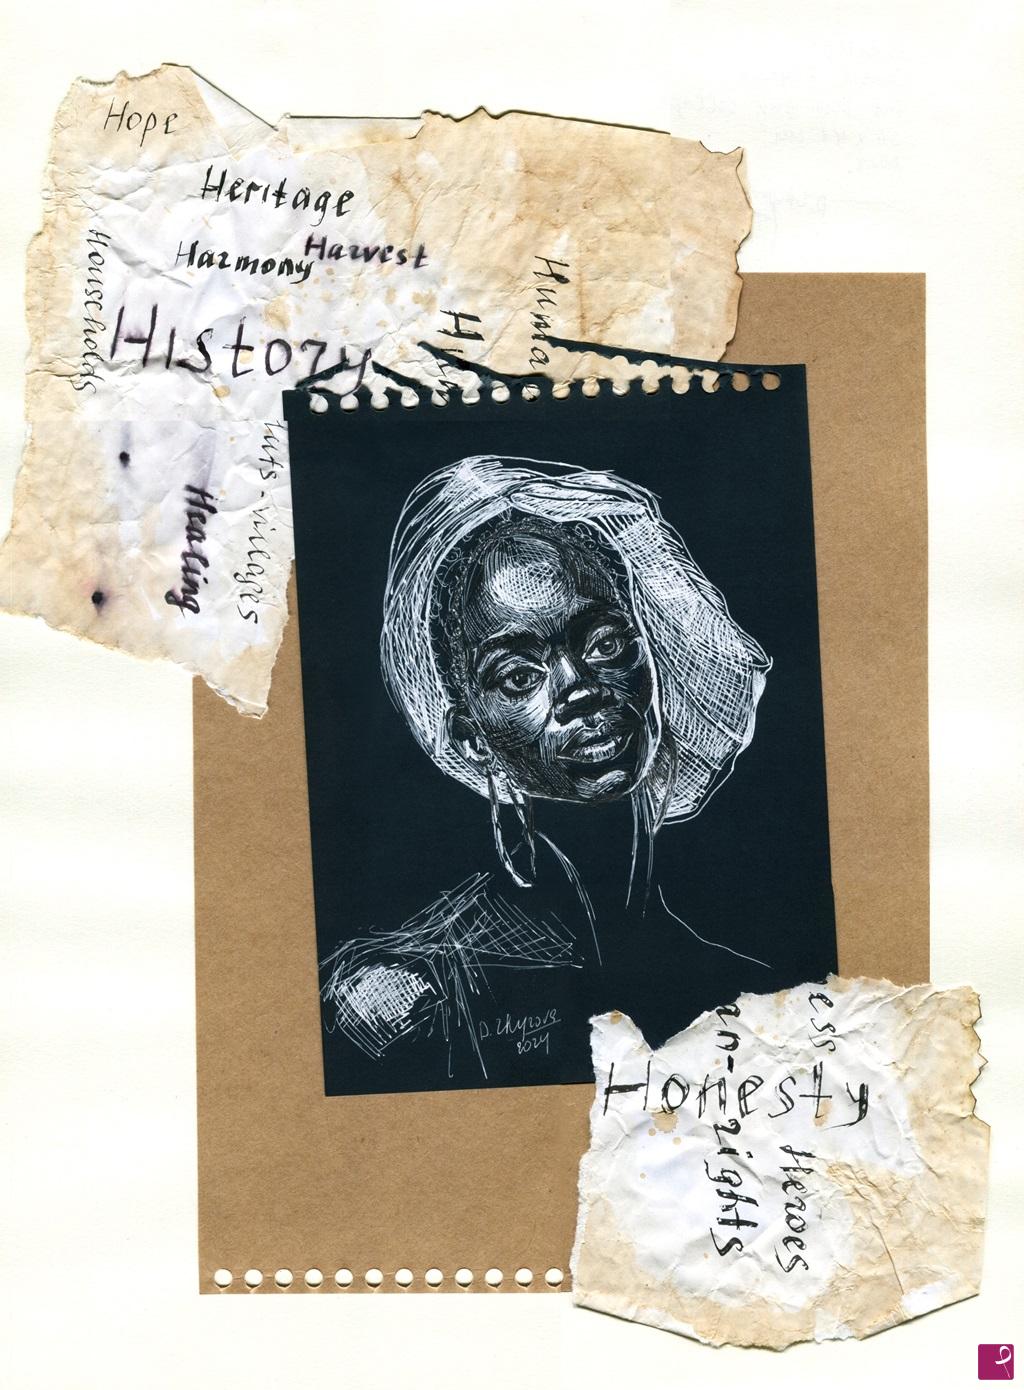 Hope
Heritage
Harmony
Harvest
Households
History
Huma
Huts-villages
Healing
D. Zhyrova
2024
ess
an-rights
Honesty
Heroes